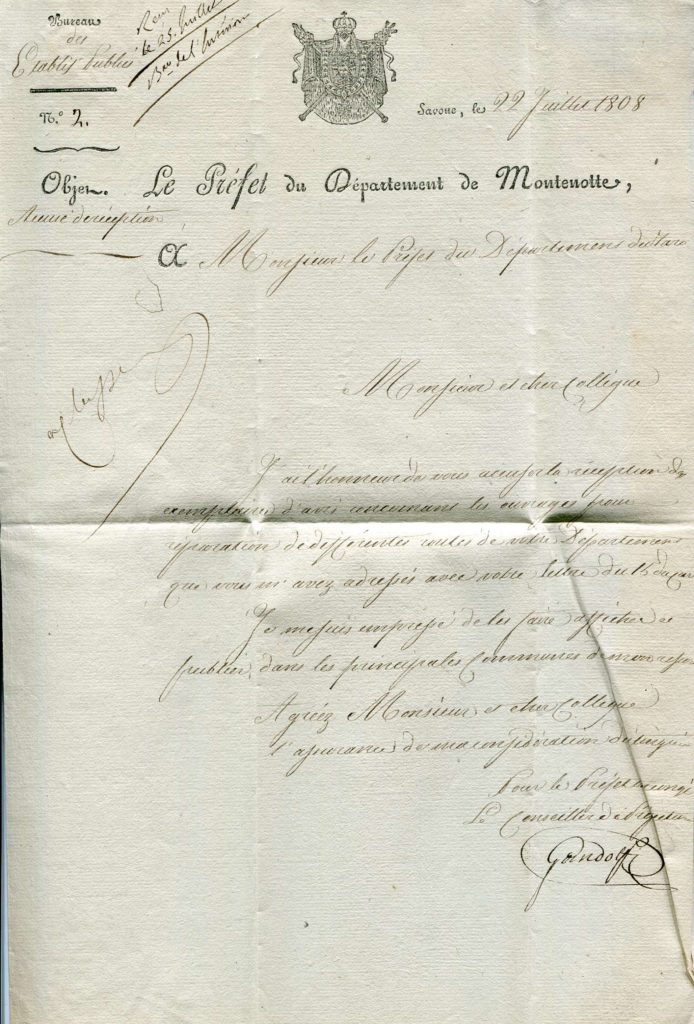 Bureau
des
Etabliss Publics
le 25 Juillet
N.º 2.
Savone, le 22 Juillet 1808
Objet.
Le Préfet du Département de Montenotte,
Accusé de réception
A Monsieur le Préfet du Département du Taro
Monsieur et cher Collègue
J'ai l'honneur de vous accuser la réception des
exemplaires d'avis concernant les ouvrages pour
réparation de différentes routes de votre Département
que vous m'avez adressés avec votre lettre du 15 du
Je me suis empressé de les faire afficher et
publier dans les principales Communes de mon
Agréez Monsieur et cher Collègue
l'assurance de ma considération
Pour le Préfet en congé
Le Conseiller de Préfecture
Gandolfi